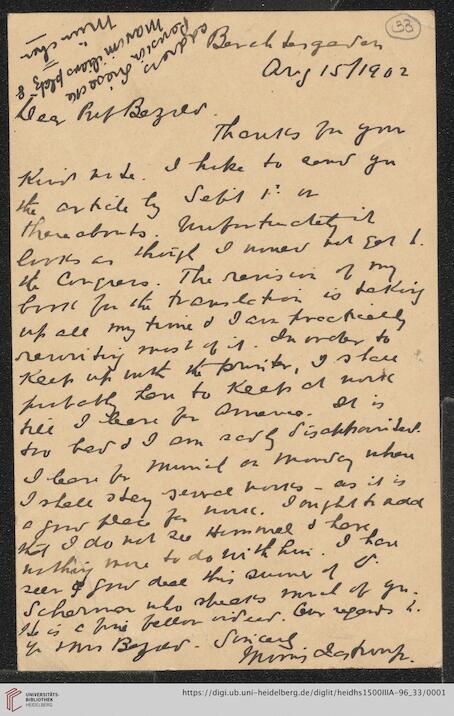 33
address
Pension Giesecke
Maximiliansplatz 8
München
Berchtesgaden
Aug 15/1902
Dear Prof Bezold.
Thanks for your
kind note. I hope to send you
the article by Sept 1st or
thereabouts. Unfortunately it
looks as though I would not get to
the Congress. The revision of my
book for the translation is taking
up all my time & I am practically
rewriting most of it. In order to
keep up with the printer, I shall
probably have to keep at work
till I leave for America. It is
too bad & I am sadly disappointed.
I leave for Munich on Monday where
I shall stay several weeks - as it is
a good place for work. I ought to add
that I do not see Hommel & have
nothing more to do with him. I have
seen a good deal this summer of
Scherman who speaks much of you.
He is a fine fellow indeed. Our regards to
you & Mrs Bezold. Sincerely
Morris Jastrow jr.
UNIVERSITÄTS-
BIBLIOTHEK
HEIDELBERG
https://digi.ub.uni-heidelberg.de/diglit/heidhs1500IIIA-96_33/0001